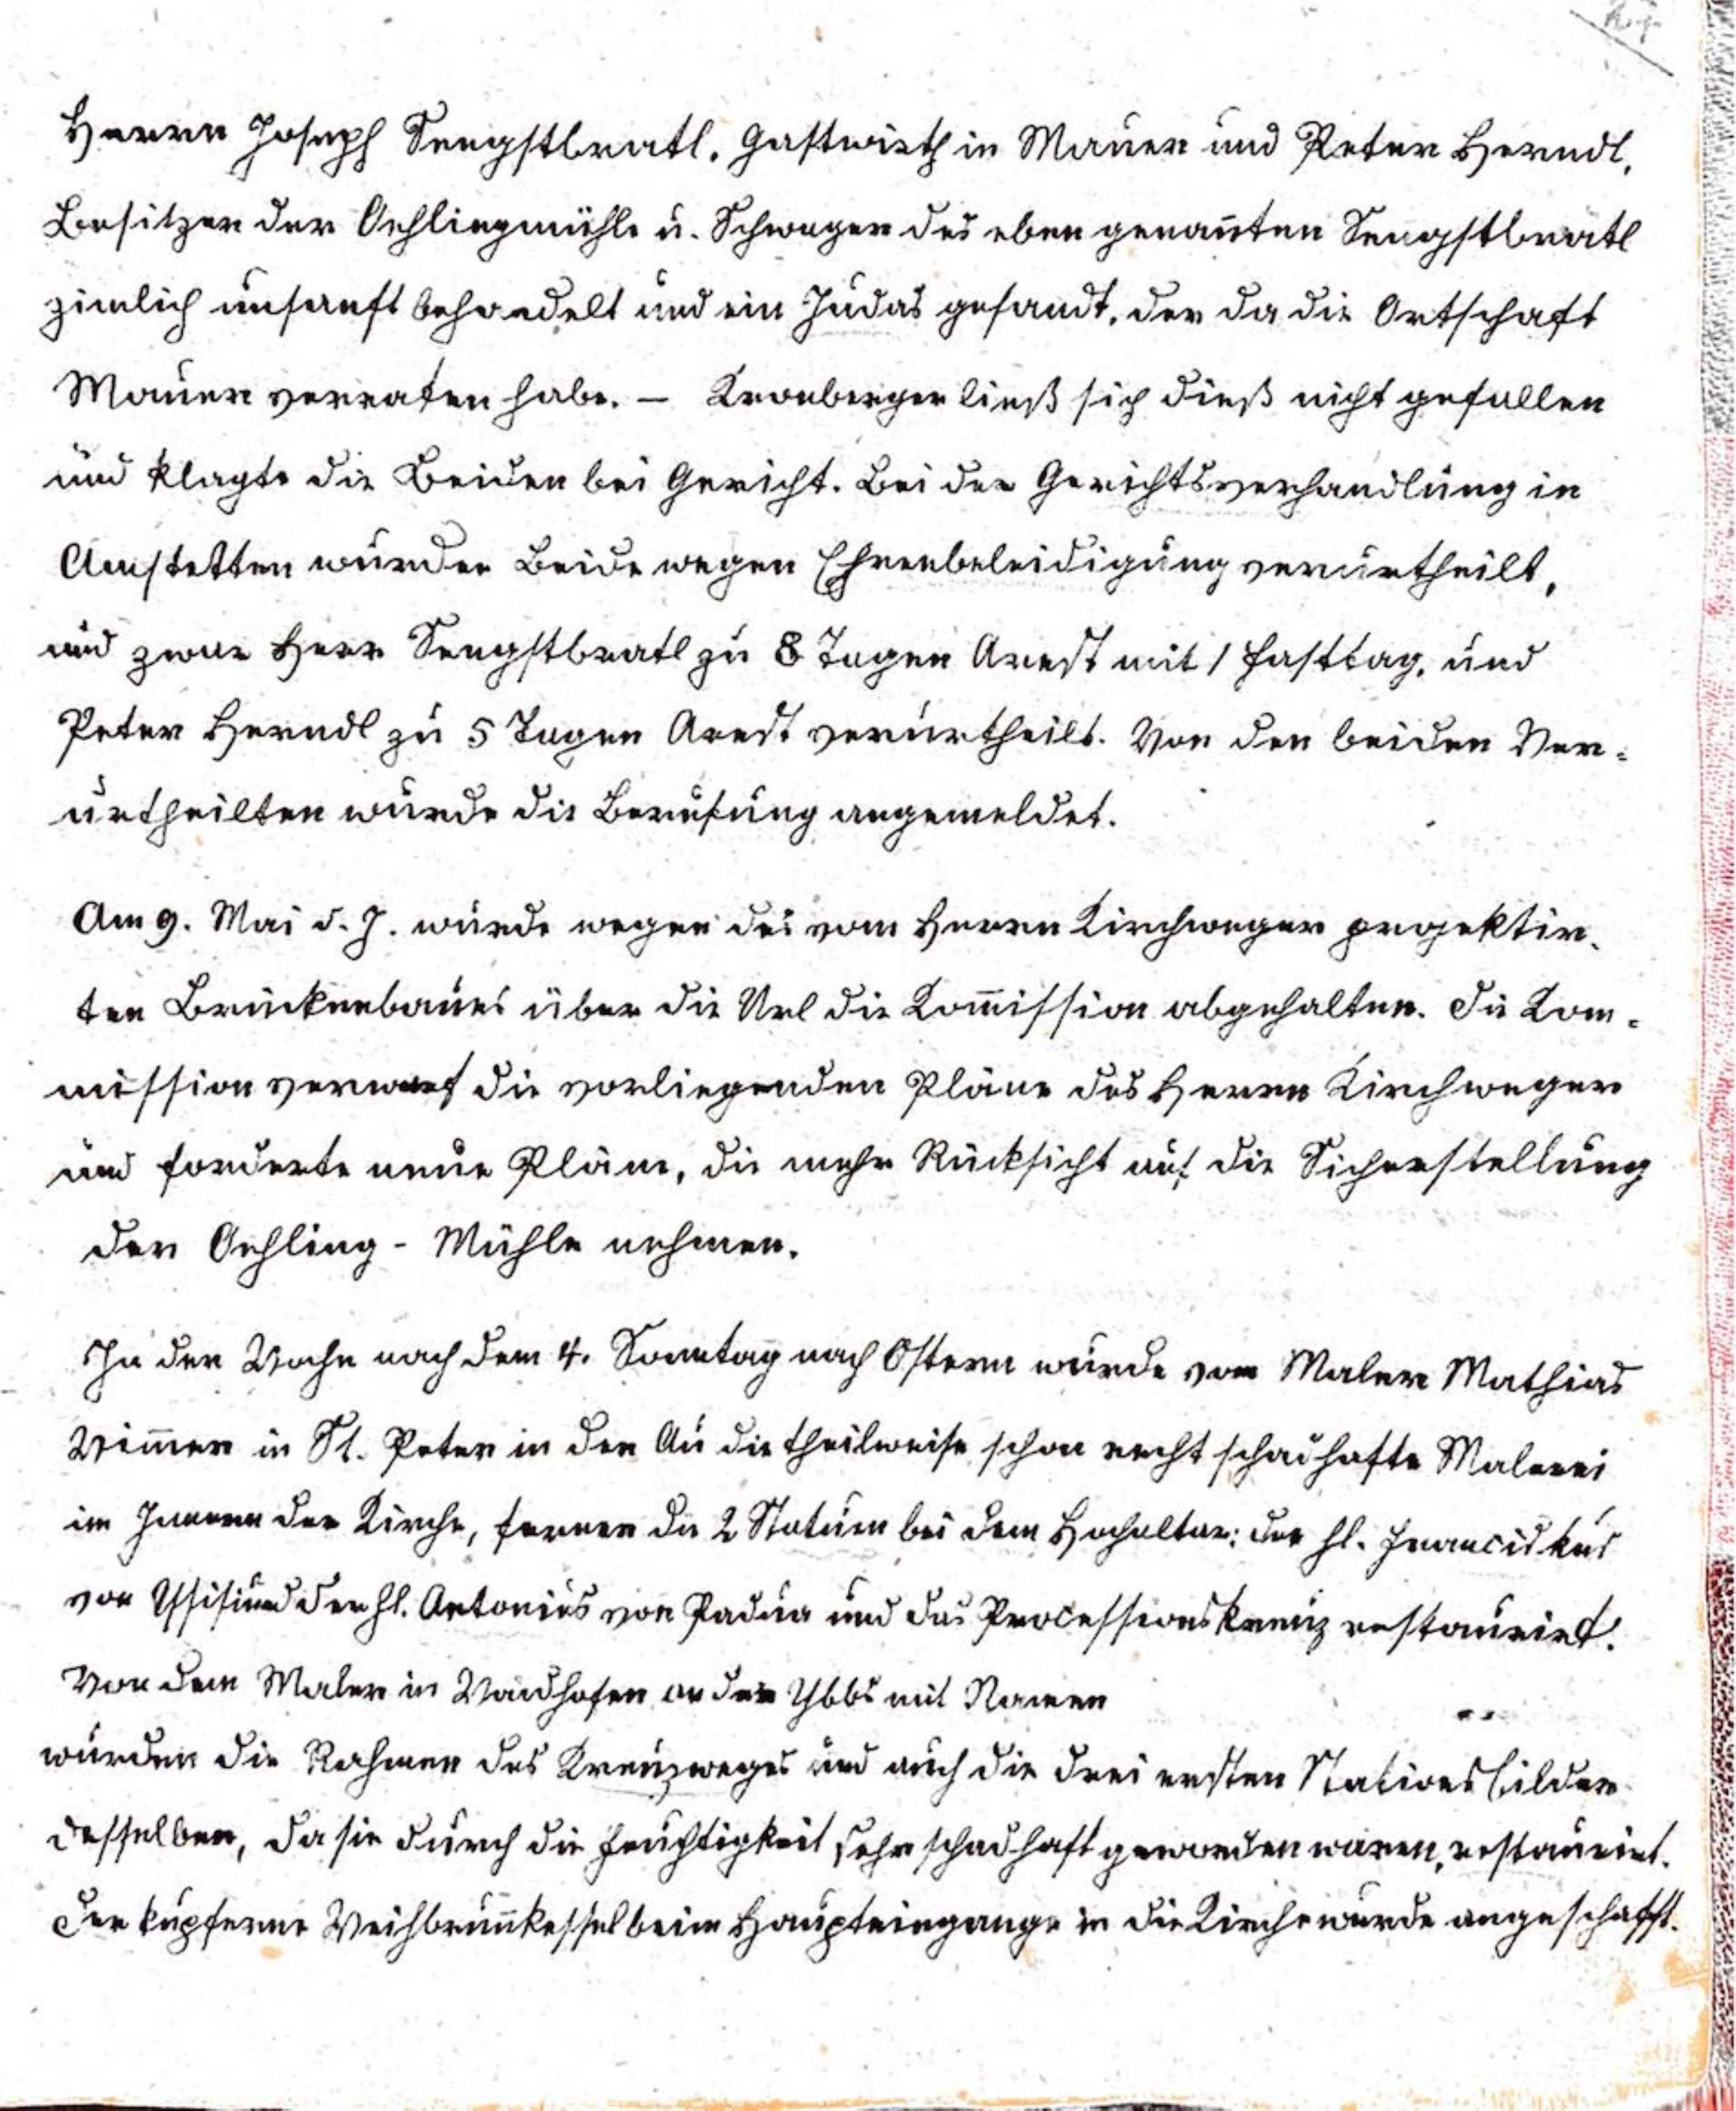 Herrn Joseph Sengstbratl, Gastwirth in Mauer und Peter Herndl,
Besitzer der Oehlingmühle u. Schwager des eben genan̄ten Sengstbratl
zimlich unsanft behandelt und ein Judas gesandt, der da die Ortschaft
Mauer verraten habe. — Kronberger ließ sich dieß nicht gefallen
und klagte die Beiden bei Gericht. Bei der Gerichtsverhandlung in
Amstetten wurden Beide wegen Ehrenbeleidigung verurtheilt,
und zwar Herr Sengstbratl zu 8 Tagen Arest mit 1 Fasttag, und
Peter Herndl zu 5 Tagen Arest verurtheilt. Von den beiden Ver=
urtheilten wurde die Berufung angemeldet.
Am 9. Mai d. J. wurde wegen des vom Herrn Kirchweger projektir-
ten Brückenbaues über die Url die Com̄ission abgehalten. Die Com-
mission verwarf die vorliegenden Pläne des Herrn Kirchweger
und forderte neue Pläne, die mehr Rücksicht auf die Sicherstellung
der Oehling - Mühle nehmen.
In der Woche nach dem 4. Sonntag nach Ostern wurde vom Maler Mathias
Wim̄er in St. Peter in der Au die theilweise schon recht schadhafte Malerei
im Innern der Kirche, ferner die 2 Statuen bei dem Hochaltar: der hl. Franciskus
von Assisi und der hl. Antonius von Padua und das Processionskreuz restaurirt.
Von dem Maler in Waidhofen an der Ybbs mit Namen
wurden die Rahmen des Kreuzweges und auch die drei ersten Stationsbilder
desselben, da sie durch die Feuchtigkeit sehr schadhaft geworden waren, restaurirt.
Der kupferne Weihbrun̄kessel beim Haupteingange in die Kirche wurde angeschafft.